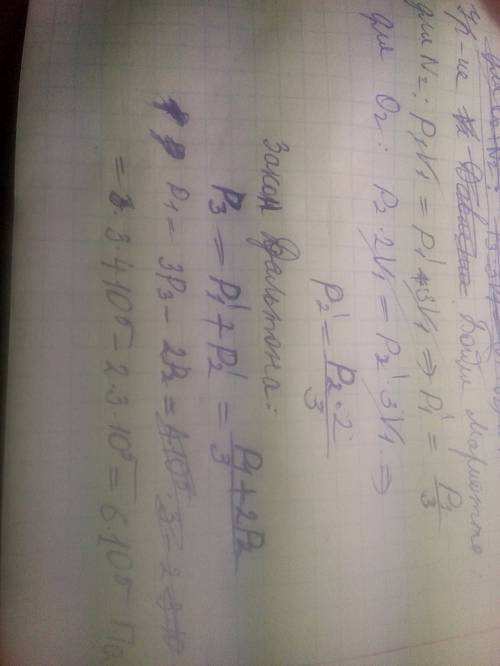 Ур-ие Бойля Мариотта:
для N₂: P₁V₁ = P₁' · 3V₁ ⇒ P₁' = P₁/3
для O₂: P₂ · 2V₁ = P₂' · 3V₁ ⇒
P₂' = P₂ · 2/3
Закон Дальтона:
P₃ = P₁' + P₂' = P₁ + 2P₂/3
P₁ = 3P₃ − 2P₂ = 4·10⁵ · 3 − 2
= 3·4·10⁵ − 2·3·10⁵ = 6·10⁵ Па